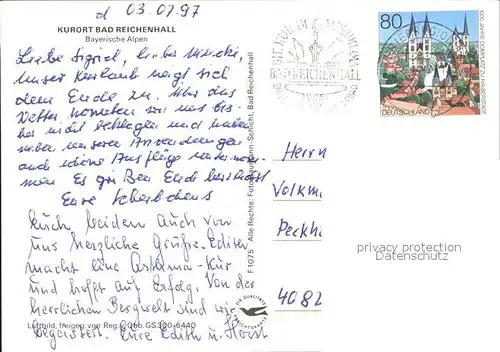 d 03.07.97
KURORT BAD REICHENHALL
Bayerische Alpen
Liebe Sigrid, lieber
Unser Kurlaub neigt sich
dem Ende zu. Über das
Wetter konnten wir uns bis-
her nicht beklagen und haben
neben unseren Anwendungen
auch schöne Ausflüge unternom-
men. Es grüßen Euch herzlichst
Eure Scherbchens
Euch beiden auch von
uns herzliche Grüße. Edith
macht eine Asthma-Kur
und hofft auf Erfolg. Von der
herrlichen Bergwelt sind wir
begeistert. Eure Edith u. Horst
Luftbild, freigeg. von Reg. v. Obb. GS300-6440
F 1075 Alle Rechte: Schöning, Bad Reichenhall
DIE QUALITÄTS
BAD REICHENHALL
80
DEUTSCHLAND
Herrn
Volkm
Peckh
4082
privacy protection
Datenschutz